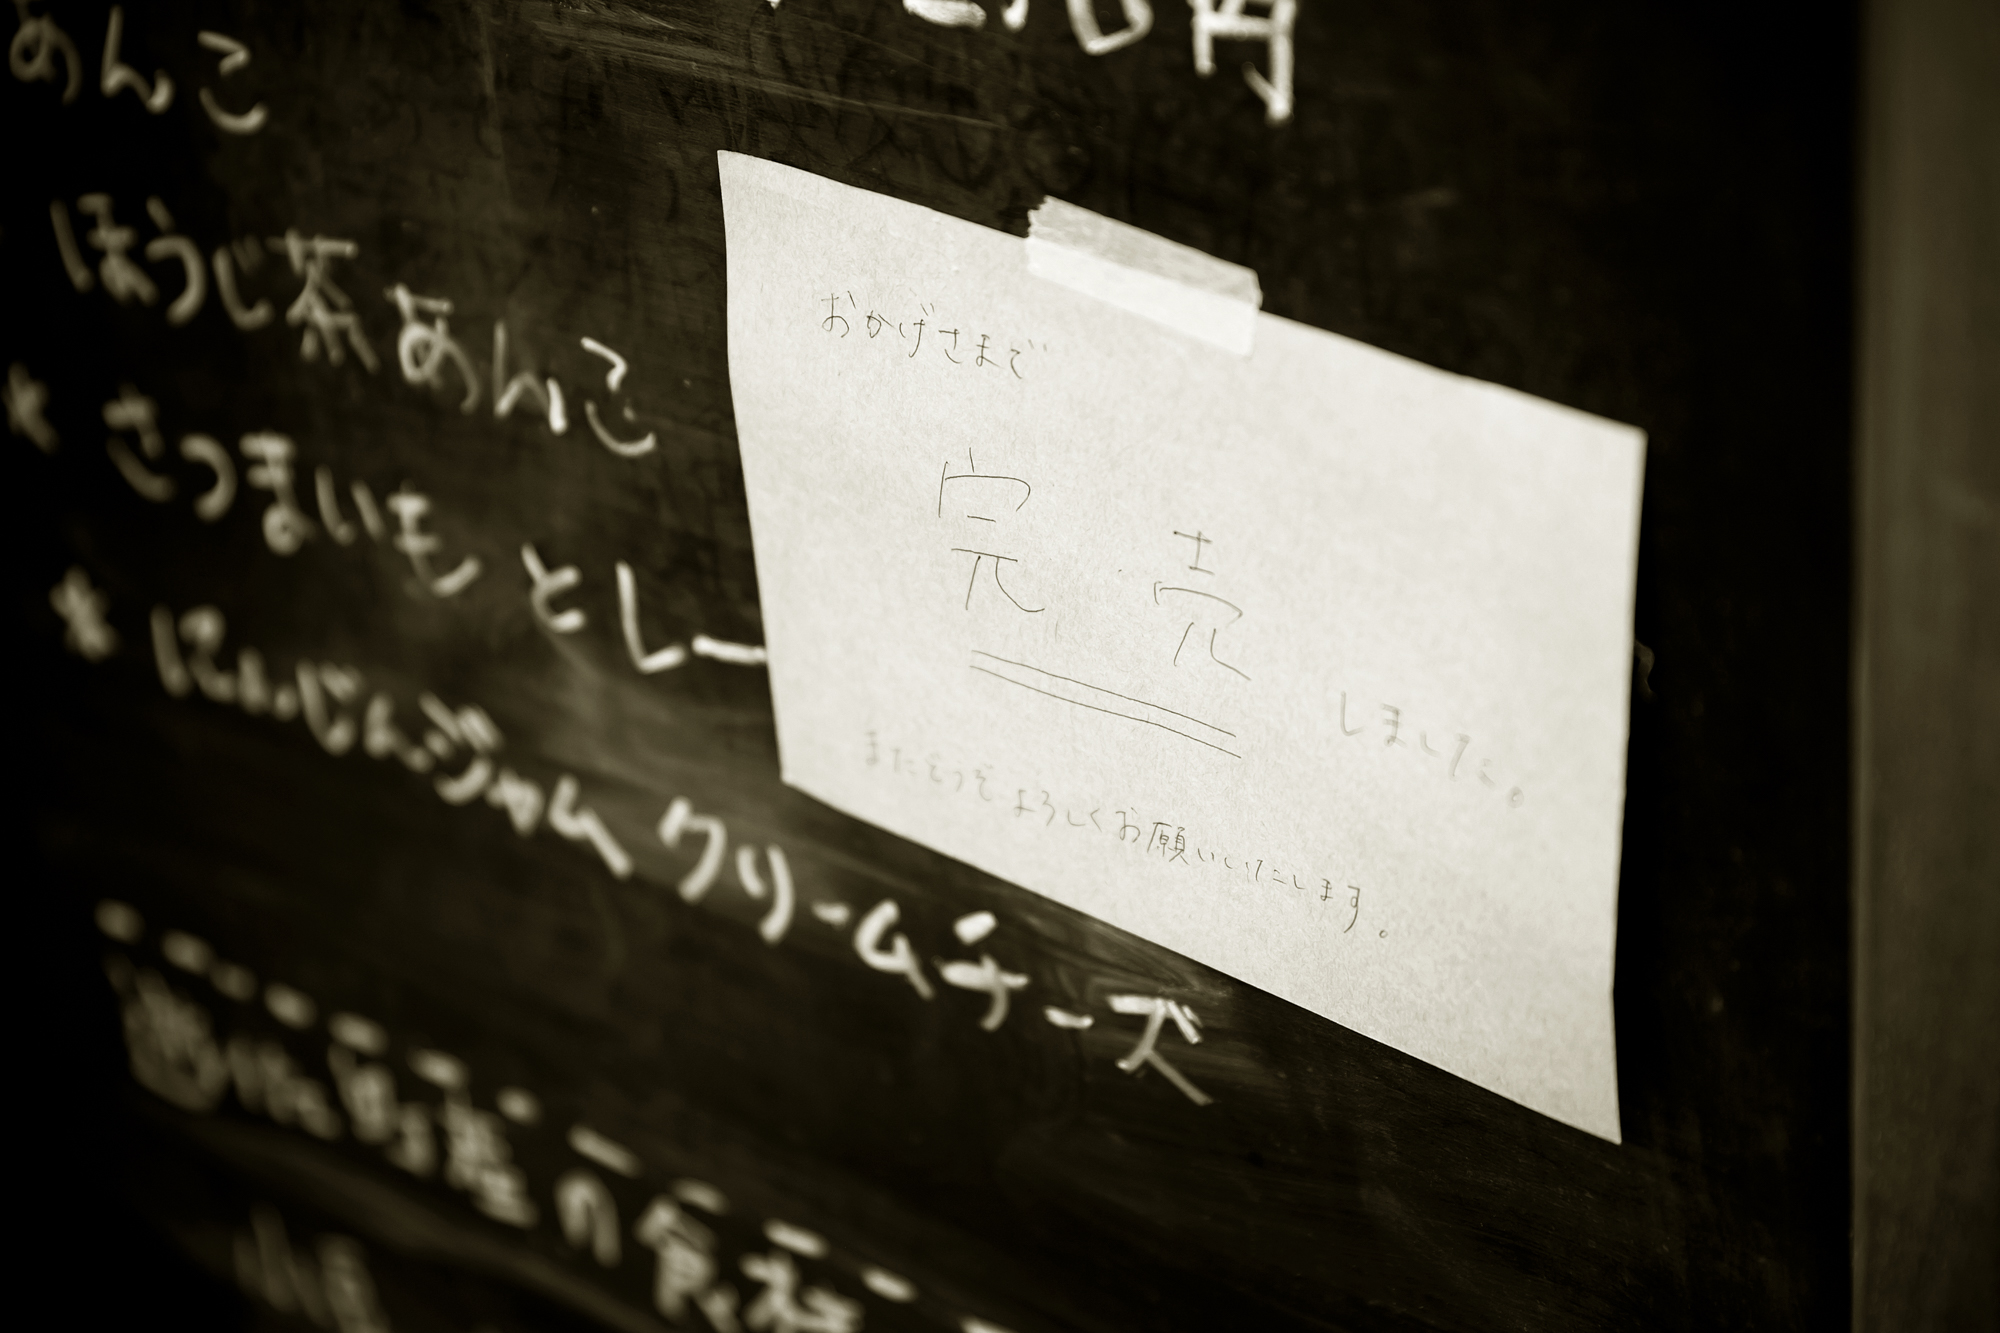 円
あんこ
ほうじ茶あんこ
* さつまいもとレー
* にんじんジャムクリームチーズ
おかげさまで
完売しました。
またどうぞよろしくお願いいたします。